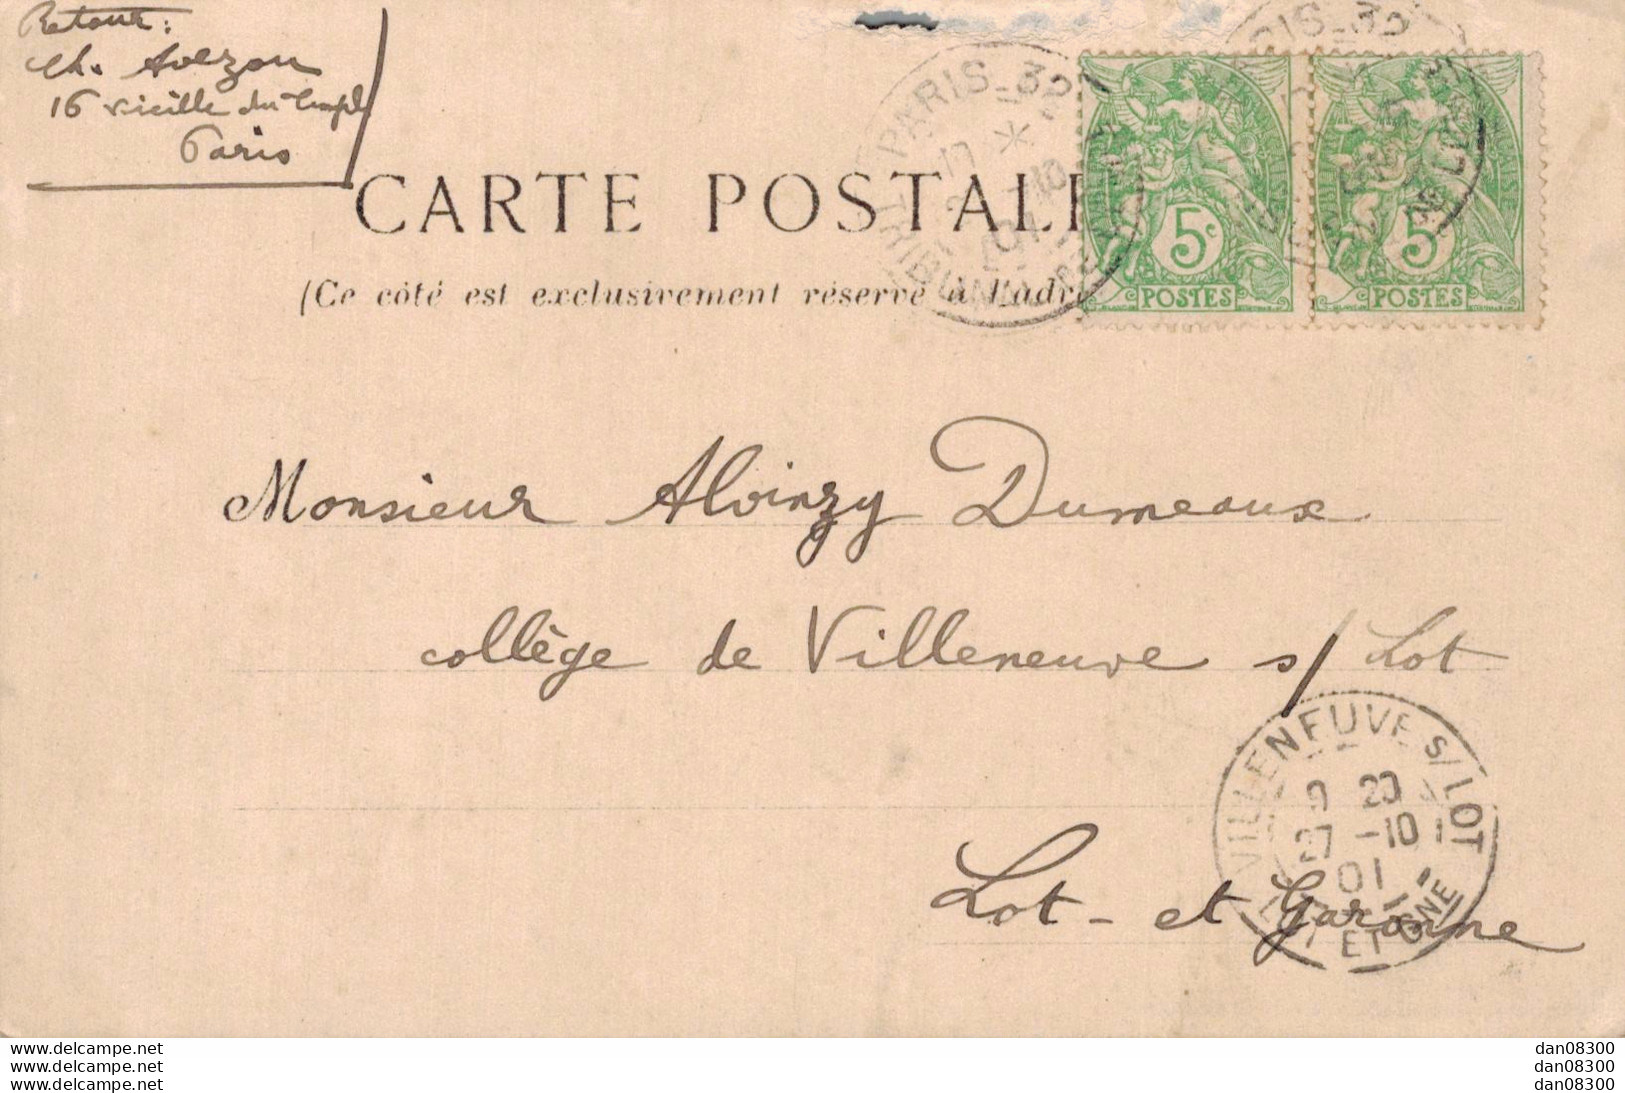 Retour:
Ch. Avezou
16 vieille du Templ
Paris
CARTE POSTALE
(Ce côté est exclusivement réservé à l'adre
PARIS_32
10
01
RIS_32
5c
POSTES
5
POSTES
Monsieur Alvinzy Dumeaux
collège de Villeneuve s/ Lot
Lot-et Garonne
VILLENEUVE S/LOT
9 20
27 -10
01
ET GNE
www.delcampe.net
www.delcampe.net
www.delcampe.net
dan08300
dan08300
dan08300